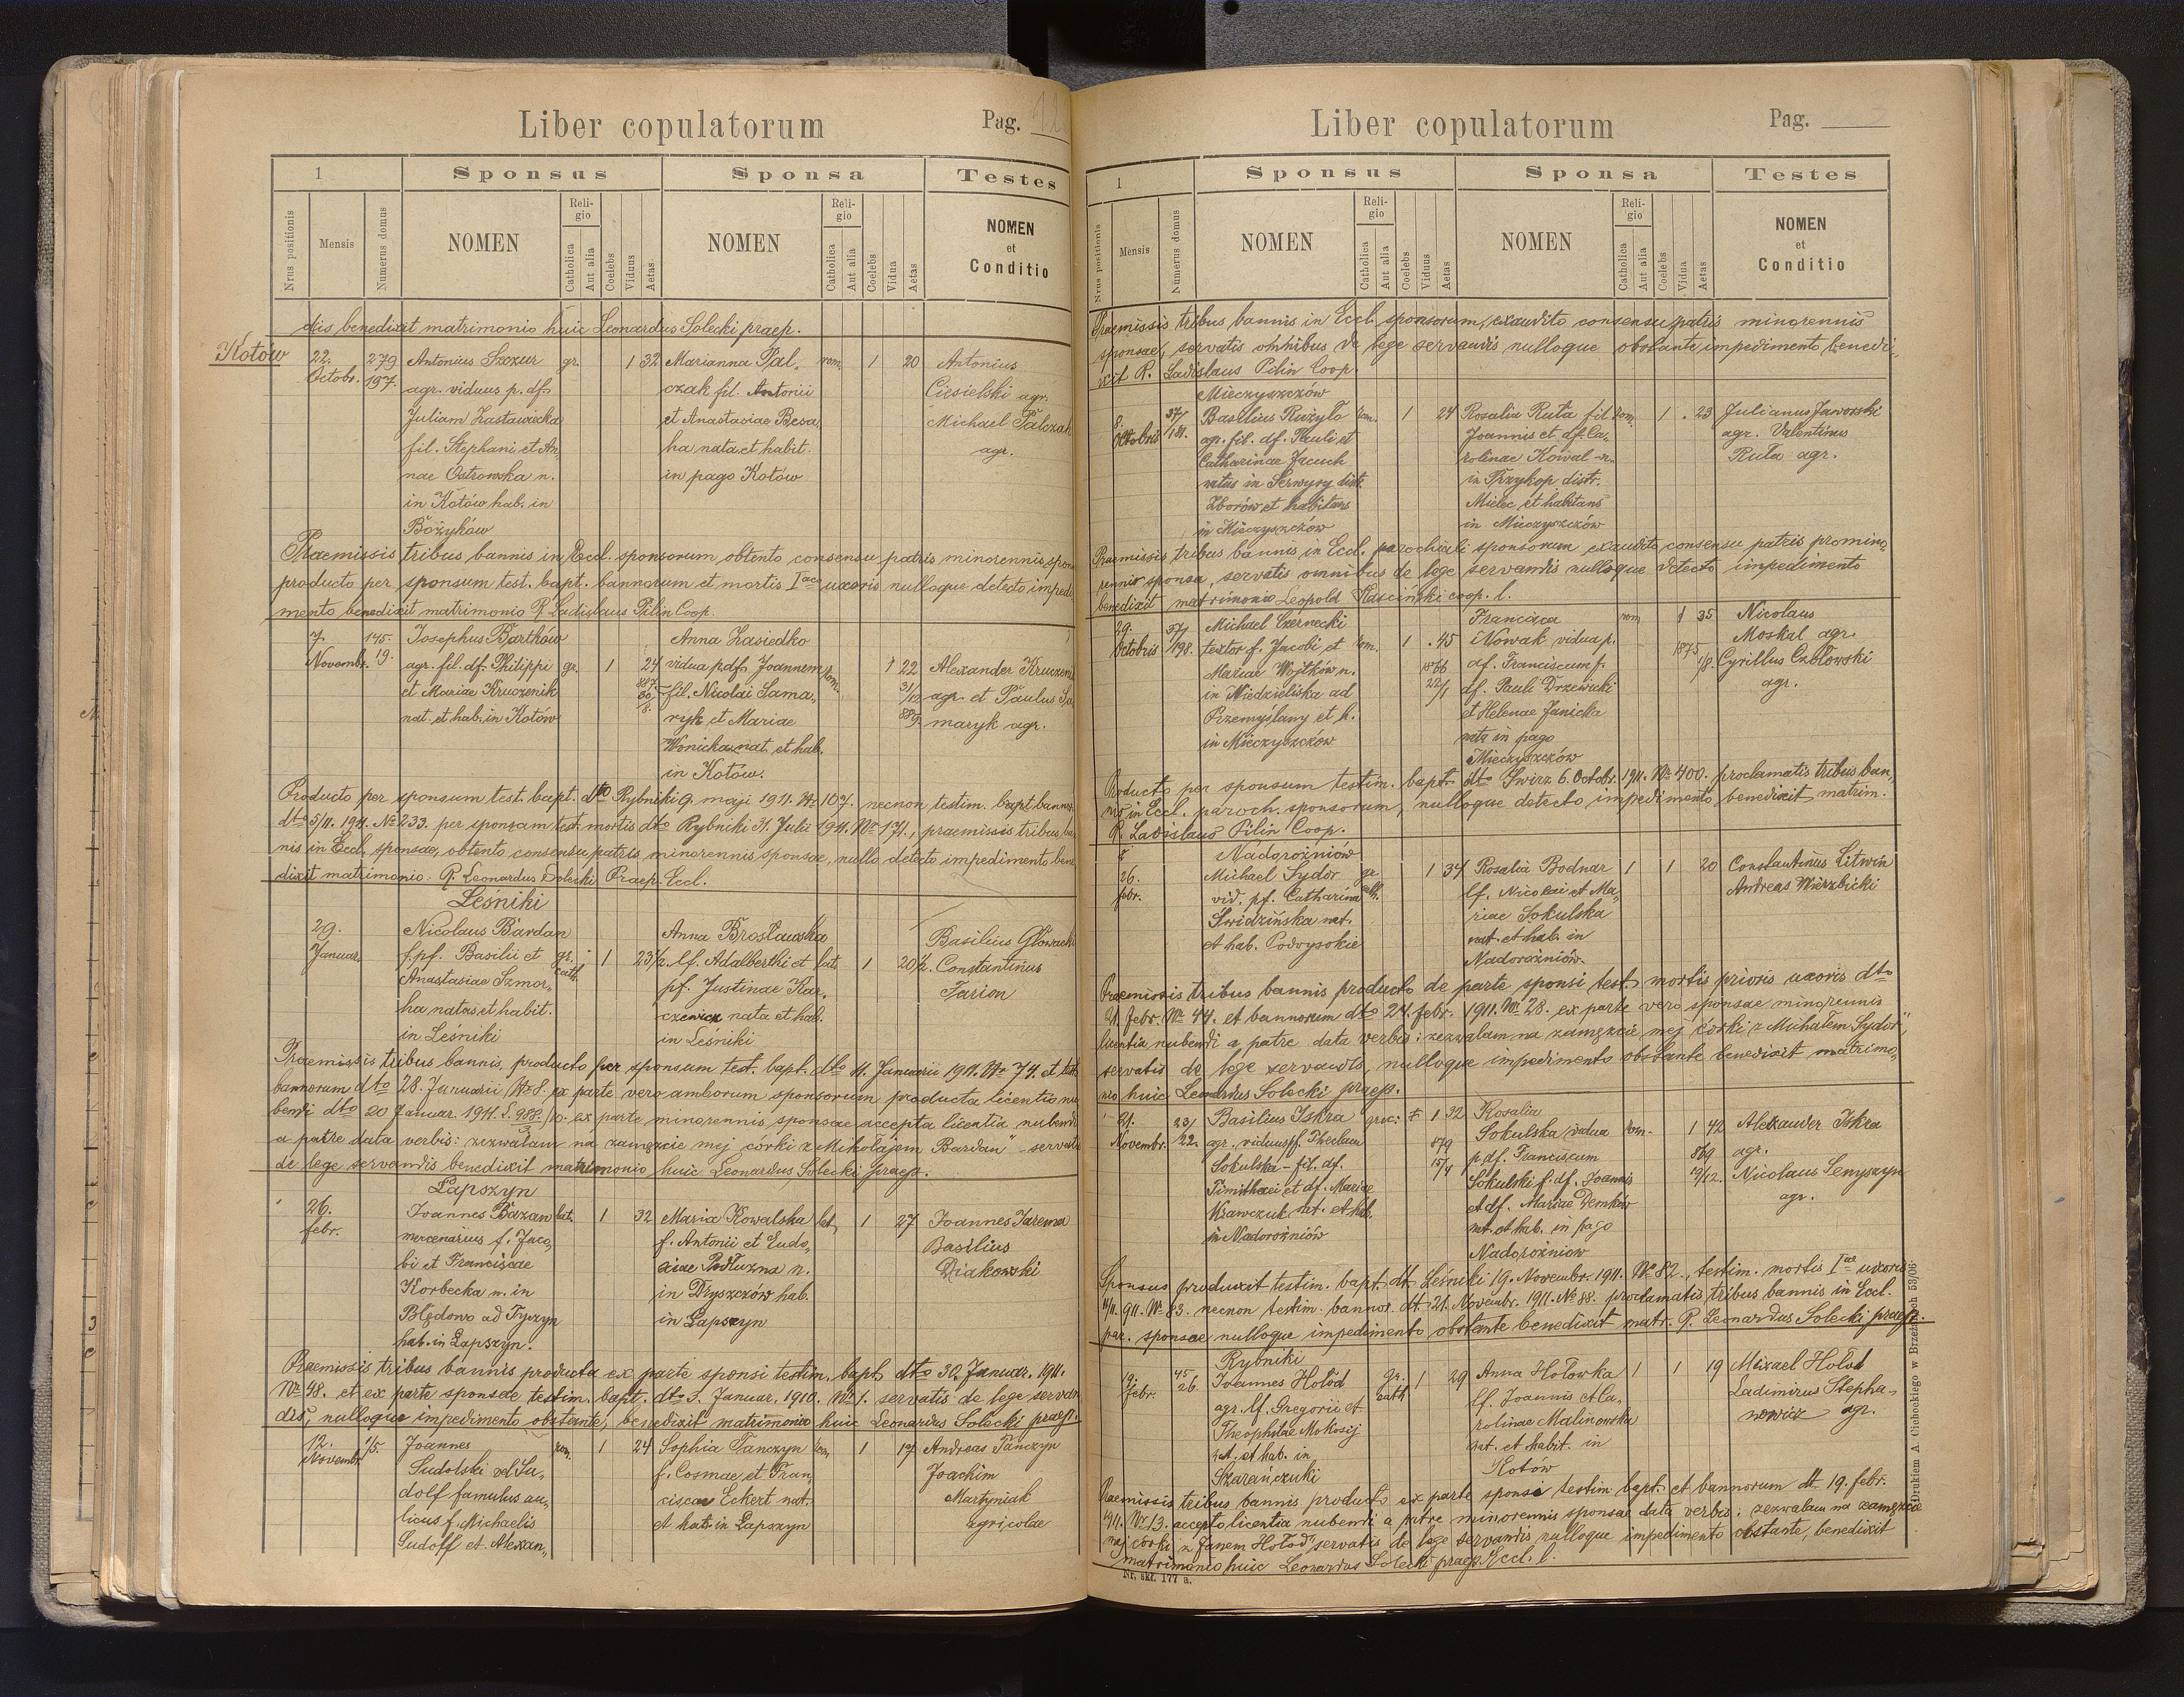 Liber copulatorum
Pag.
1
Sponsus
Sponsa
Testes
Nrus positionis
Mensis
Numerus domus
NOMEN
Religio
Catholica
Aut alia
Coelebs
Viduus
Aetas
NOMEN
Religio
Catholica
Aut alia
Coelebs
Vidua
Aetas
NOMEN
et
Conditio
dis benedixit matrimonio huic Leonardus Solecki praep.
Kotów
22. Octobr.
279
197.
Antonius
agr. viduus p. df.
Juliam Zastawecka
fil. Stephani et An,
nae Ostrowska n.
in Kotów hab. in
Bożyków
gr.
1 32
Marianna Pal,
czak fil. Antonii
et Anastasiae Besa,
ha nata et habit.
in pago Kotów
rom.
1
20
Antonius
Ciesielski agr.
Michael Palczak
agr.
Praemissis tribus bannis in Eccl. sponsorum obtento consensu patris minorennis
producto per sponsum test. bapt. bannorum et mortis Iae uxoris nulloque detecto impedi
mento benedixit matrimonio R. Ladislaus Pilin Coop.
7. Novembr.
145.
19.
Josephus Bartków
agr. fil. df. Philippi
et Mariae Kruczenik
nat. et hab. in Kotów
gr.
1
24
Anna Zasiedko
vidua p df. Joannem
fil. Nicolai Sama,
ryk et Mariae
Wonicka nat. et hab.
in Kotów.
rom.
1 22
Alexander
agr. et Paulus Sa,
maryk agr.
Producto per sponsum test. bapt. dto Rybniki 9. maji 1911. Nr 107. necnon testim. bapt. bannor.
dto 5/11. 1911. No 233. per sponsam test. mortis dto Rybniki 31. Julii 1911. No 171., praemissis tribus ban
nis in Eccl. sponsae, obtento consensu patris minorennis sponsae, nullo detecto impedimento bene
dixit matrimonio. R. Leonardus Solecki Praep. Eccl.
Leśniki
29. Januar.
Nicolaus Bardan
f. pf. Basilii et
Anastasiae Szmor,
ha natus et habit.
in Leśniki
gr. cath.
1
23½
Anna Brosławska
lf. Adalberthi et
pf. Justinae Kar,
czewicz nata et hab.
in Leśniki
lat.
1
20½
Basilius Głowacki
Constantinus
Tarion
Praemissis tribus bannis, producto per sponsum test. bapt. dto 11. Januarii 1911. No 74. et test.
bannorum dto 28. Januarii No 8. ex parte vero amborum sponsorum producta licentia nu
bendi dto 20 Januar. 1911. L. 988. ex parte minorennis sponsae accepta licentia nubendi
a patre data verbis: zezwalam na zamęzcie mej córki z Mikołajem Bardan" servatis
de lege servandis benedixit matrimonio huic Leonardus Solecki praep.
Łapszyn
26. febr.
Joannes Bazan
mercenarius f. Jaco,
bi et Franciscae
Korbecka n. in
Błędowo ad Tyczyn
hab. in Łapszyn.
lat.
1
32
Maria Kowalska
f. Antonii et Eudo,
xiae Podłuzna n.
in Dryszczów hab.
in Łapszyn
lat.
1
27
Joannes Jarema
Basilius
Diakowski
Praemissis tribus bannis producta ex parte sponsi testim. bapt. dto 30. Januar. 1911.
No 48. et ex parte sponsae testim. bapt. dto 3. Januar. 1910. No 1. servatis de lege servan
dis, nulloque impedimento obstante, benedixit matrimonio huic Leonardus Solecki praep.
12. Novembr.
1/5.
Joannes
Sudolski vel Su,
dolf famulus au,
licus f. Michaelis
Sudolf et Alexan,,
rom.
1
24
Sophia Panczyn
f. Cosmae et Fran,
ciscae Eckert nat.
et hab. in Łapszyn
rom.
1
17
Andreas Panczyn
Joachim
Martyniak
agricolae
Liber copulatorum
Pag.
1
Sponsus
Sponsa
Testes
Nrus positionis
Mensis
Numerus domus
NOMEN
Religio
Catholica
Aut alia
Coelebs
Viduus
Aetas
NOMEN
Religio
Catholica
Aut alia
Coelebs
Vidua
Aetas
NOMEN
et
Conditio
Praemissis tribus bannis in Eccl. sponsorum, exaudito consensu patris minorennis
sponsae, servatis omnibus de lege servandis nulloque obstante impedimento, benedi,
xit R. Ladislaus Pilin Coop.
Mieczyszczów
8. Octobris
37/
131.
Basilius Ruzyło
agr. fil. df. Pauli et
Catharinae Jacuch
natus in Serwyry distr.
Zborów et habitans
in Mieczyszczów
rom.
1
24
Rosalia Ruta fil
Joannis et df. Ca,
rolinae Kowal n.
in Przykop distr.
Mielec et habitans
in Mieczyszczów
rom.
1
23
Julianus Jaworski
agr. Valentinus
Ruta agr.
Praemissis tribus bannis in Eccl. parochiali sponsorum exaudito consensu patris pro mino,
rennis sponsa, servatis omnibus de lege servandis nulloque detecto impedimento
benedixit matrimonio Leopold Kasciński coop. l.
29. Octobris
37/
198.
Michael Czernecki
textor f. Jacobi et
Mariae Wojtków n.
in Niedzieliska ad
Przemyślany et h.
in Mieczyszczów
rom.
1
45
1866
22/1
Francisca
Nowak vidua p.
df. Franciscum f.
df. Pauli Drzewicki
et Helenae Janicka
nata in pago
Mieczyszczów
rom
1 35
1875
Nicolaus
Moskal agr.
Cyrillus Czołowski
agr.
Producto per sponsum testim. bapt. dto Swirz 6. Octobr. 1911. No 400. proclamatis tribus ban,
nis in Eccl. paroch. sponsorum, nulloque detecto impedimento, benedixit matrim.
R. Ladislaus Pilin Coop.
Nadorożniów
26. febr.
Michael Sydor
vid. pf. Catharina
Swidzińska nat.
et hab. Podwysokie
gr. cath.
1 34
Rosalia Bodnar
lf. Nicolai et Ma,
riae Sokulska
nat. et hab. in
Nadorożniów.
1
1
20
Constantinus Litwin
Andreas Wierzbicki
Praemissis tribus bannis producto de parte sponsi test. mortis prioris uxoris dto
21. febr. No 44. et bannorum dto 24. febr. 1911. No 28. ex parte vero sponsae minorennis
licentia nubendi a patre data verbis: zezwalam na zamęzcie mej córki z Michałem Sydor",
servatis de lege servandis, nulloque impedimento obstante benedixit matrimo,
nio huic Leonardus Solecki praep.
21. Novembr.
23/
22.
Basilius Iskra
agr. viduus pf. Theclam
Sokulska - fil. df.
Timithaei et df. Mariae
Krawczuk nat. et hab.
in Nadorożniów
1 32
879
15/4
Rosalia
Sokulska vidua
p df. Franciscum
Sokulski f. df. Joannis
et df. Mariae Demków
nat. et hab. in pago
Nadorożniow
rom.
1 42
869
19/12.
Alexander Iskra
agr.
Nicolaus Semyszyn
agr.
Sponsus produxit testim. bapt. dt. Leśniki 19. Novembr. 1911. No 82., testim. mortis Iae uxoris
11/11. 911. No 83. necnon testim. bannor. dt. 21. Novembr. 1911. No 88. proclamatis tribus bannis in Eccl.
par. sponsae nulloque impedimento obstante benedixit matr. R. Leonardus Solecki praep.
Rybniki
19. febr.
45
26.
Joannes Hołod
agr. lf. Gregorii et
Theophilae Mokosij
nat. et hab. in
Szarańczuki
Gr. cath
1
29
Anna Hołowka
lf. Joannis et Ca,
rolinae Malinowska
nat. et habit. in
Kotów
1
1
19
Mixael Hołod
Ladimirus Stepha-
nowicz agr.
Praemissis tribus bannis producto ex parte sponsi testim. bapt. et bannorum dt. 19. febr.
1911. No 13. accepto licentia nubendi a patre minorennis sponsae data verbis: zezwalam na zamęzcie
mej córki z Janem Hołod" servatis de lege servandis nulloque impedimento obstante, benedixit
matrimonio huic Leonardus Solecki praep. Eccl. l.
Nr. skł. 177 a.
Drukiem A. Cichockiego w Brzeżanach 53/06